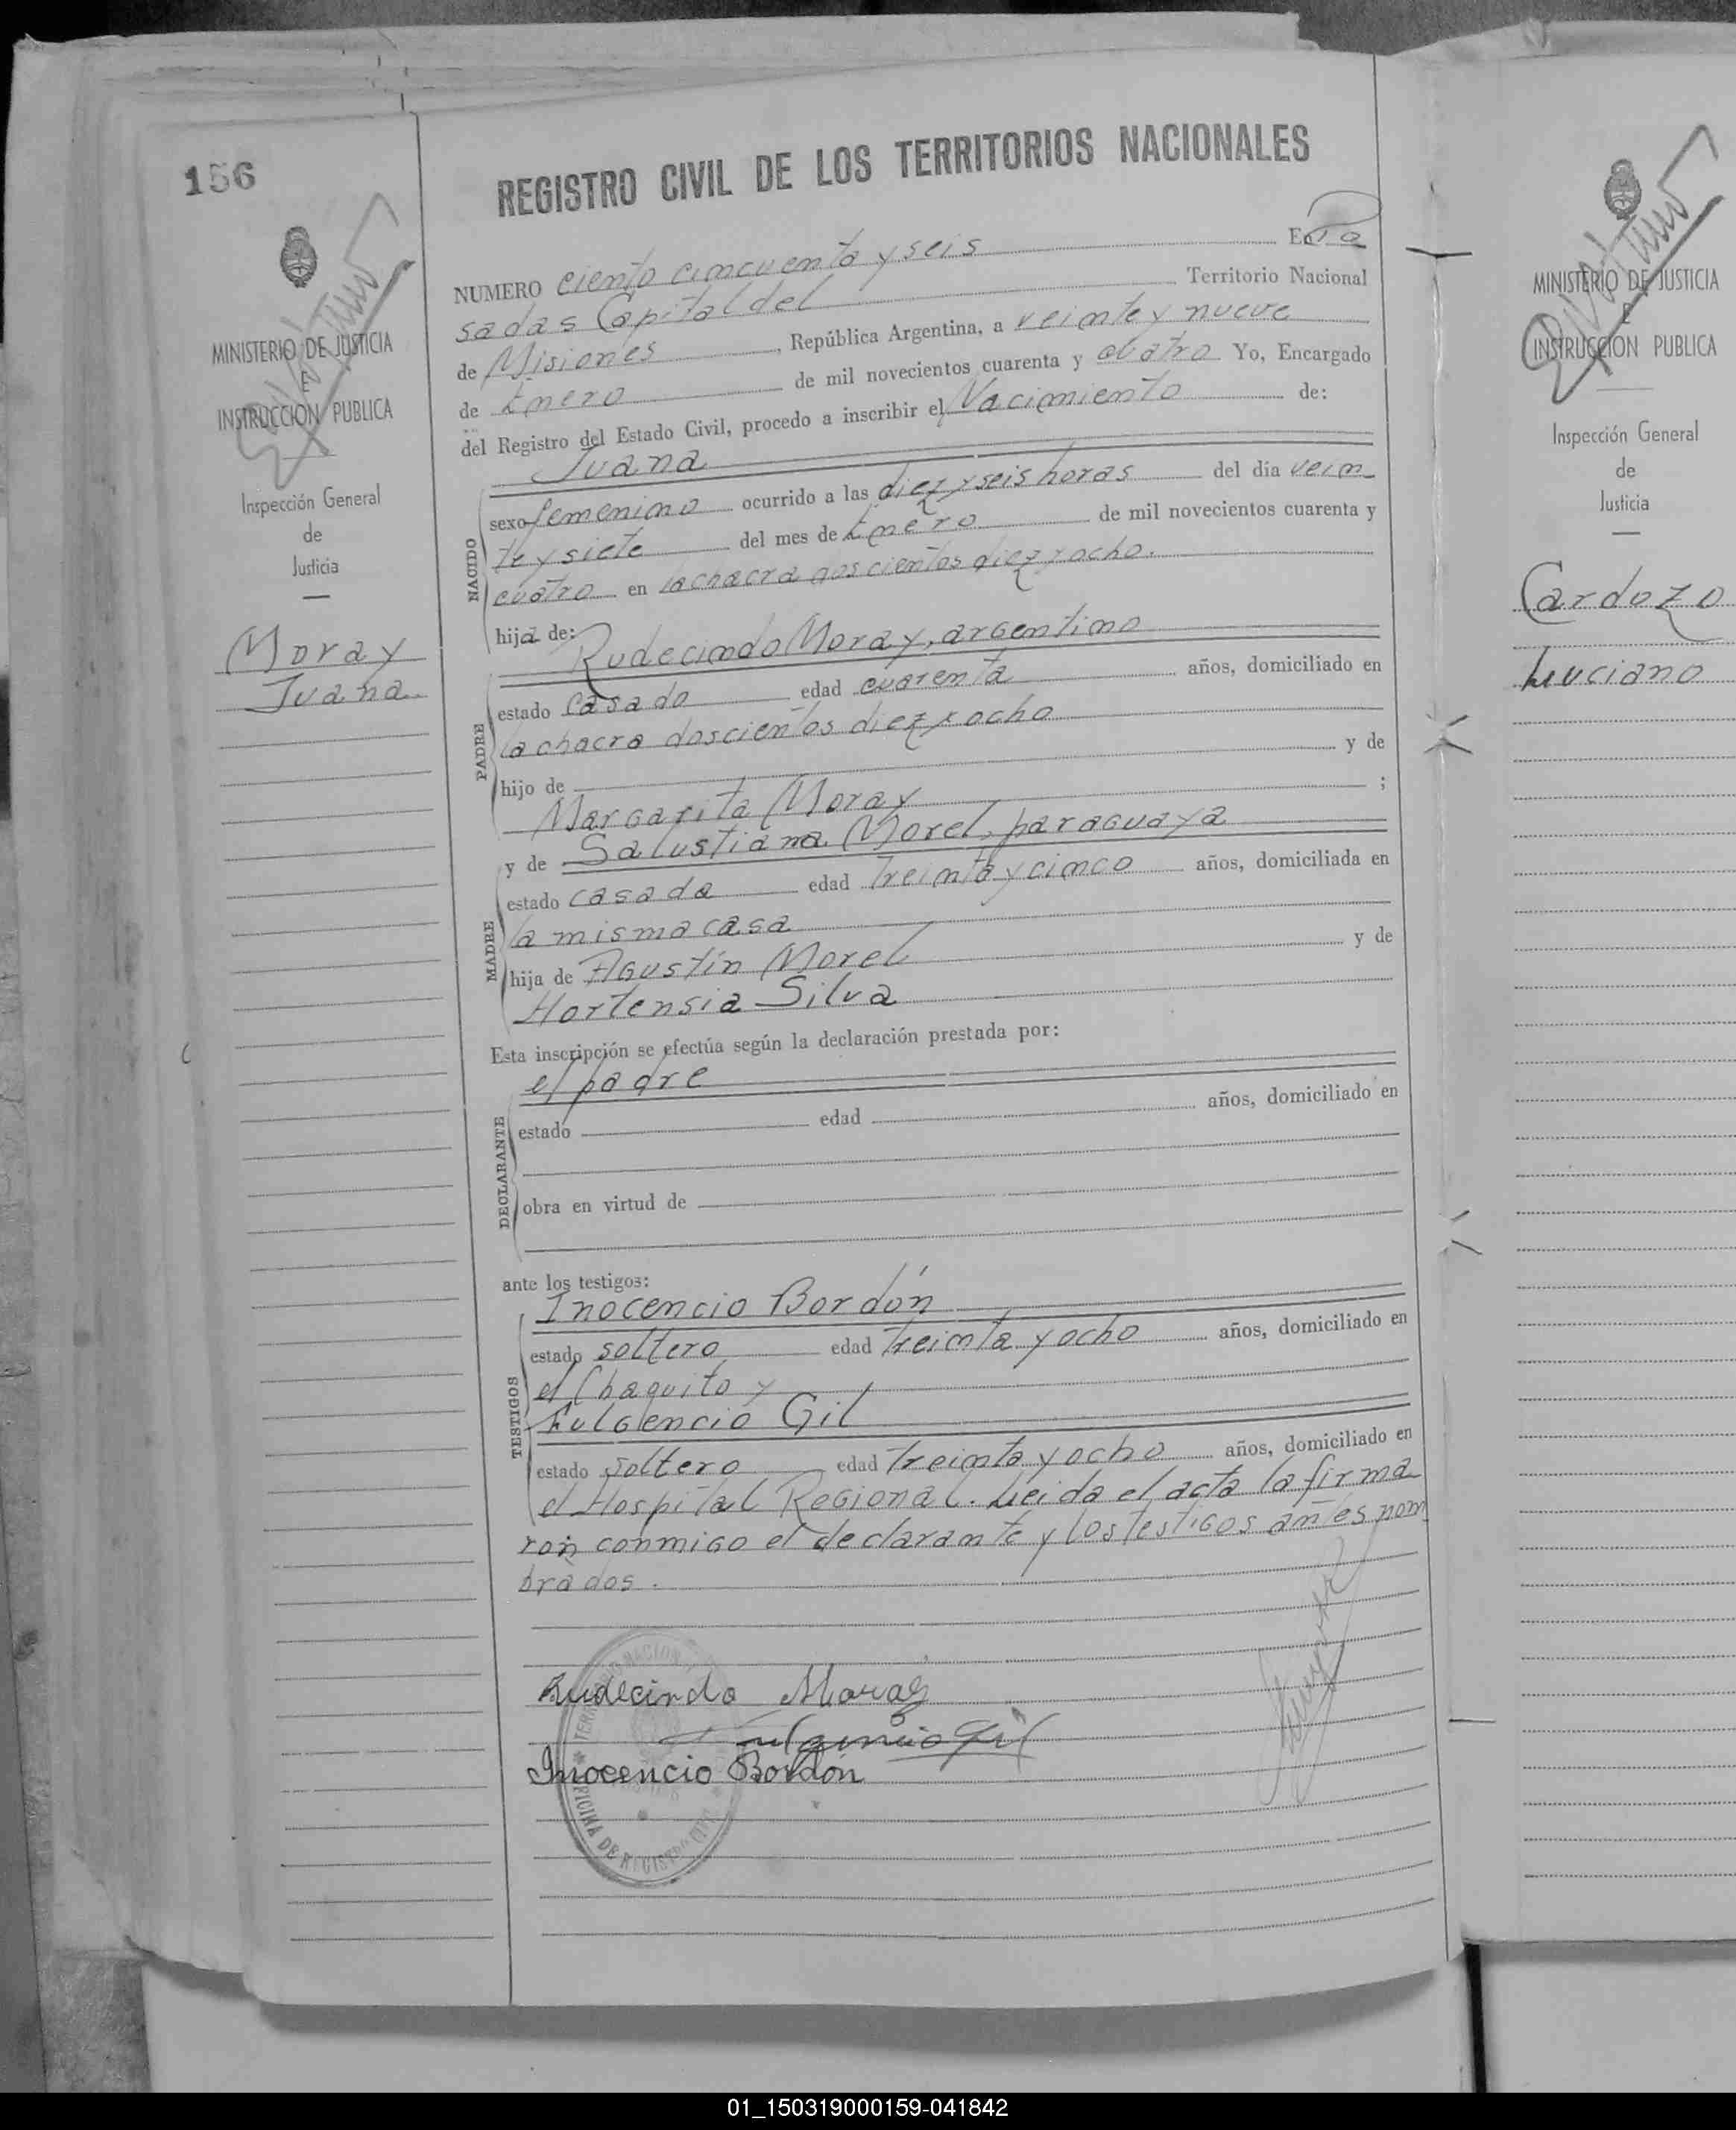 156
REGISTRO CIVIL DE LOS TERRITORIOS NACIONALES
MINISTERIO DE JUSTICIA
E
INSTRUCCION PUBLICA
Inspección General
de
Justicia
Moray
Juana
NUMERO ciento cincuenta y seis En Po
sadas Capital del Territorio Nacional
de Misiones, República Argentina, a veinte y nueve
de Enero de mil novecientos cuarenta y cuatro Yo, Encargado
del Registro del Estado Civil, procedo a inscribir el Nacimiento de:
Juana
NACIDO
sexo femenino ocurrido a las diez y seis horas del día vein
te y siete del mes de Enero de mil novecientos cuarenta y
cuatro en la chacra doscientos diez y ocho.
hija de: Rudecindo Moray, argentino
PADRE
estado casado edad cuarenta años, domiciliado en
la chacra doscientos diez y ocho
hijo de y de
Margarita Moray ;
y de Salustiana Morel, paraguaya
MADRE
estado casada edad treinta y cinco años, domiciliada en
la misma casa
hija de Agustín Morel y de
Hortensia Silva
Esta inscripción se efectúa según la declaración prestada por:
el padre
DECLARANTE
estado edad años, domiciliado en
obra en virtud de
ante los testigos:
Inocencio Bordón
TESTIGOS
estado soltero edad treinta y ocho años, domiciliado en
el Chaquito y
Fulgencio Gil
estado soltero edad treinta y ocho años, domiciliado en
el Hospital Regional. Leida el acta la firma
ron conmigo el declarante y los testigos antes nom
brados.
Rudecindo Moray
Fulgencio Gil
Inocencio Bordón
OFICINA DE REGISTRO CIVIL
MINISTERIO DE JUSTICIA
E
INSTRUCCION PUBLICA
Inspección General
de
Justicia
Cardozo
Luciano
01_150319000159-041842